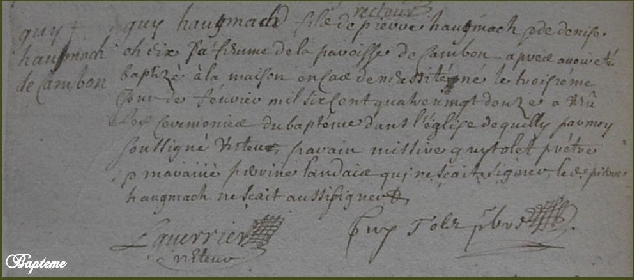 guy haugmach fils de pierre haugmach & de denise
guy
haugmach
de Cambon
sa femme de la paroisse de Cambon apres avoir eté
baptizé à la maison en cas de necessité né le troisieme
jour de feuvrier mil six cent quatre vingt douze a
les ceremonies du baptéme dans l'église de quilly par moy
soussigné recteur, parain missire guy tolet prétre
maraine perrine landais qui ne scait signer, le dit pierre
haugmach ne scait aussi signer
Guerrier
recteur
Guy Tolet pbre
Bapteme